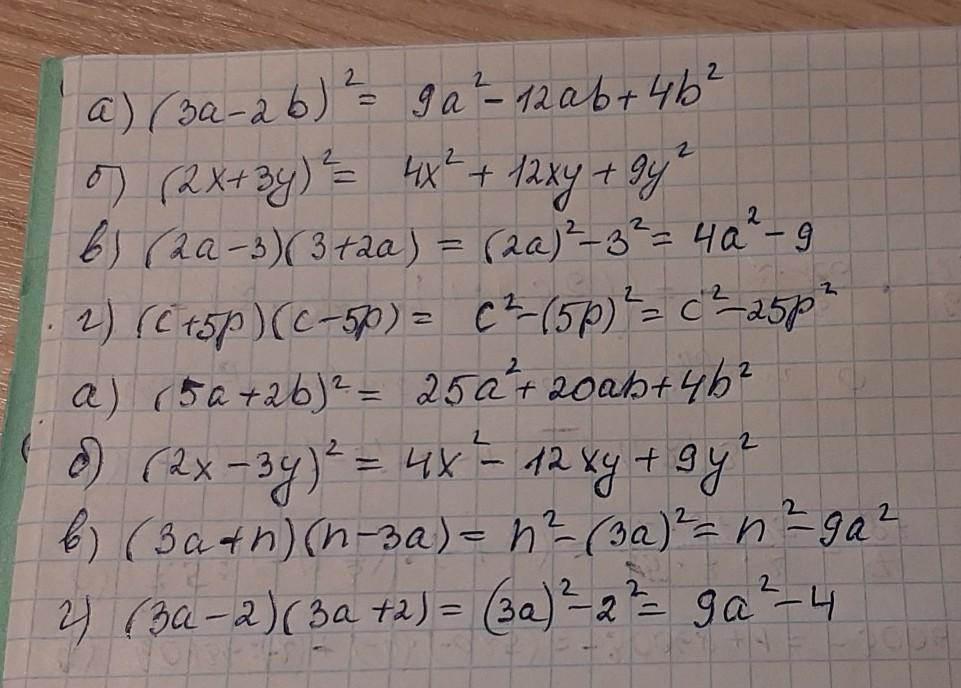 а) (3a-2b)² = 9a² - 12ab + 4b²
б) (2x+3y)² = 4x² + 12xy + 9y²
в) (2a-3)(3+2a) = (2a)² - 3² = 4a² - 9
г) (c+5p)(c-5p) = c² - (5p)² = c² - 25p²
а) (5a+2b)² = 25a² + 20ab + 4b²
б) (2x-3y)² = 4x² - 12xy + 9y²
в) (3a+n)(n-3a) = n² - (3a)² = n² - 9a²
г) (3a-2)(3a+2) = (3a)² - 2² = 9a² - 4